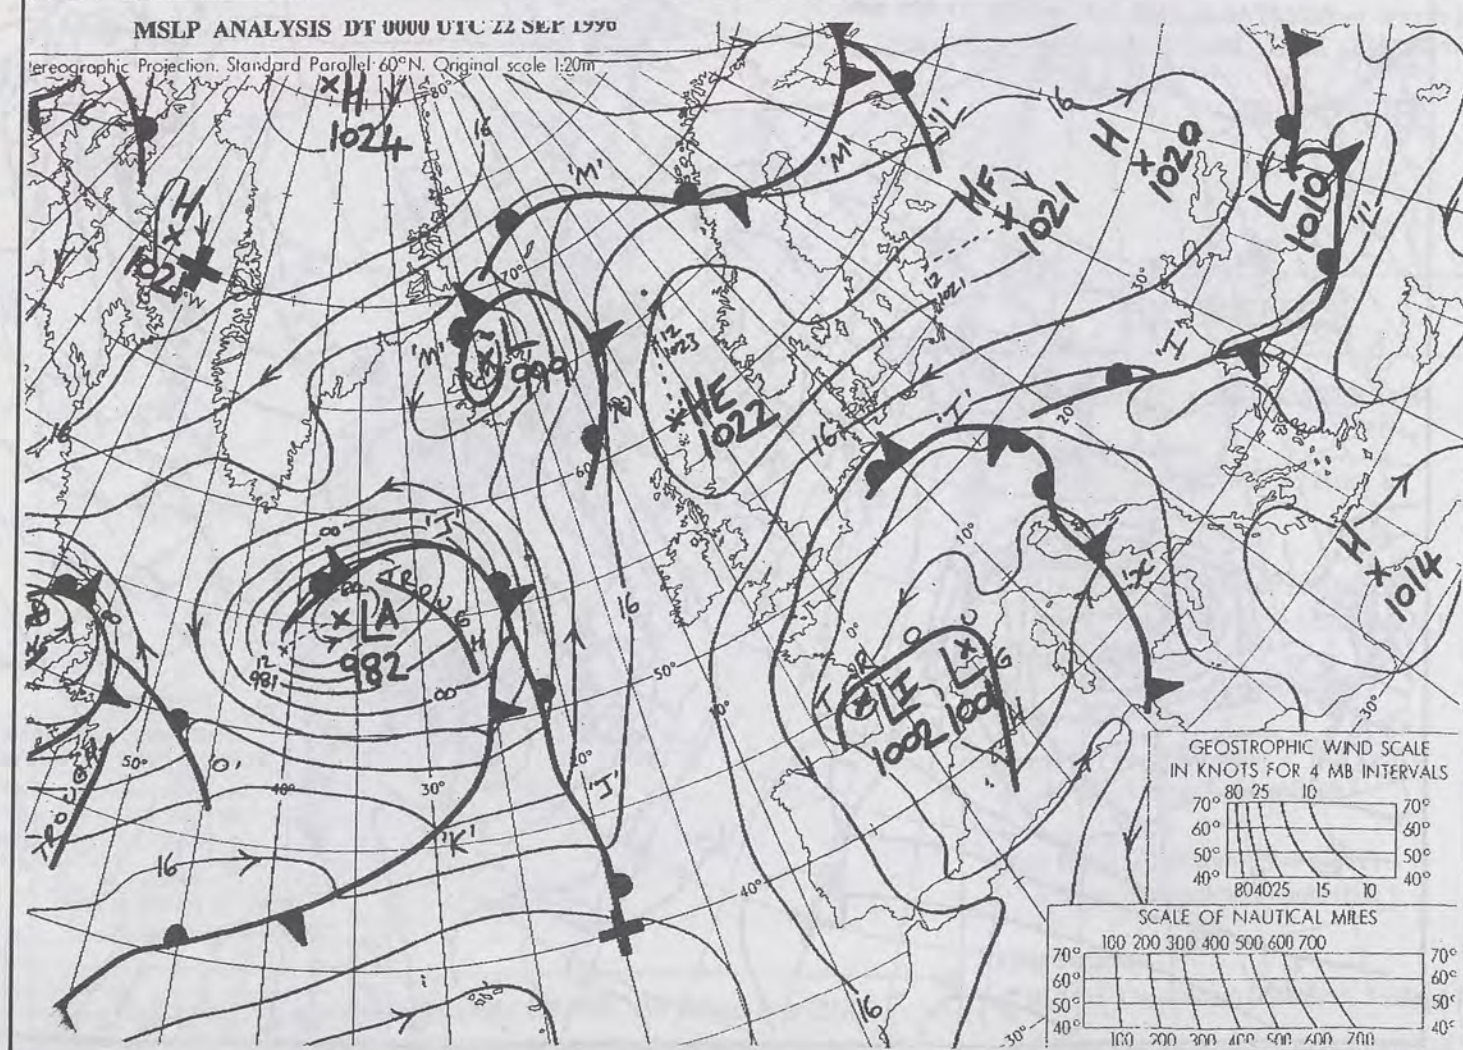 MSLP ANALYSIS DT 0000 UTC 22 SEP 1996
ereographic Projection. Standard Parallel 60°N. Original scale 1:20m
H
1024
80°
16
'M'
'M'
'L'
16
H
1020
HF
1021
12
1021
L
1010
'L'
H
°W
70°
'M'
L
999
12
1023
HE
1022
60°
16
16
'I'
'I'
20°
10°
10°
0°
H
1014
'J'
TROUGH
LA
982
12
981
8
8
8
16
50°
'X'
TROUGH
LI
1002
L
10°
TROUGH
50°
'O'
40°
30°
20°
'J'
'K'
16
40°
16
30°
30°
GEOSTROPHIC WIND SCALE
IN KNOTS FOR 4 MB INTERVALS
80 25 10
70° 70°
60° 60°
50° 50°
40° 40°
80 40 25 15 10
SCALE OF NAUTICAL MILES
100 200 300 400 500 600 700
70° 70°
60° 60°
50° 50°
40° 40°
100 200 300 400 500 600 700